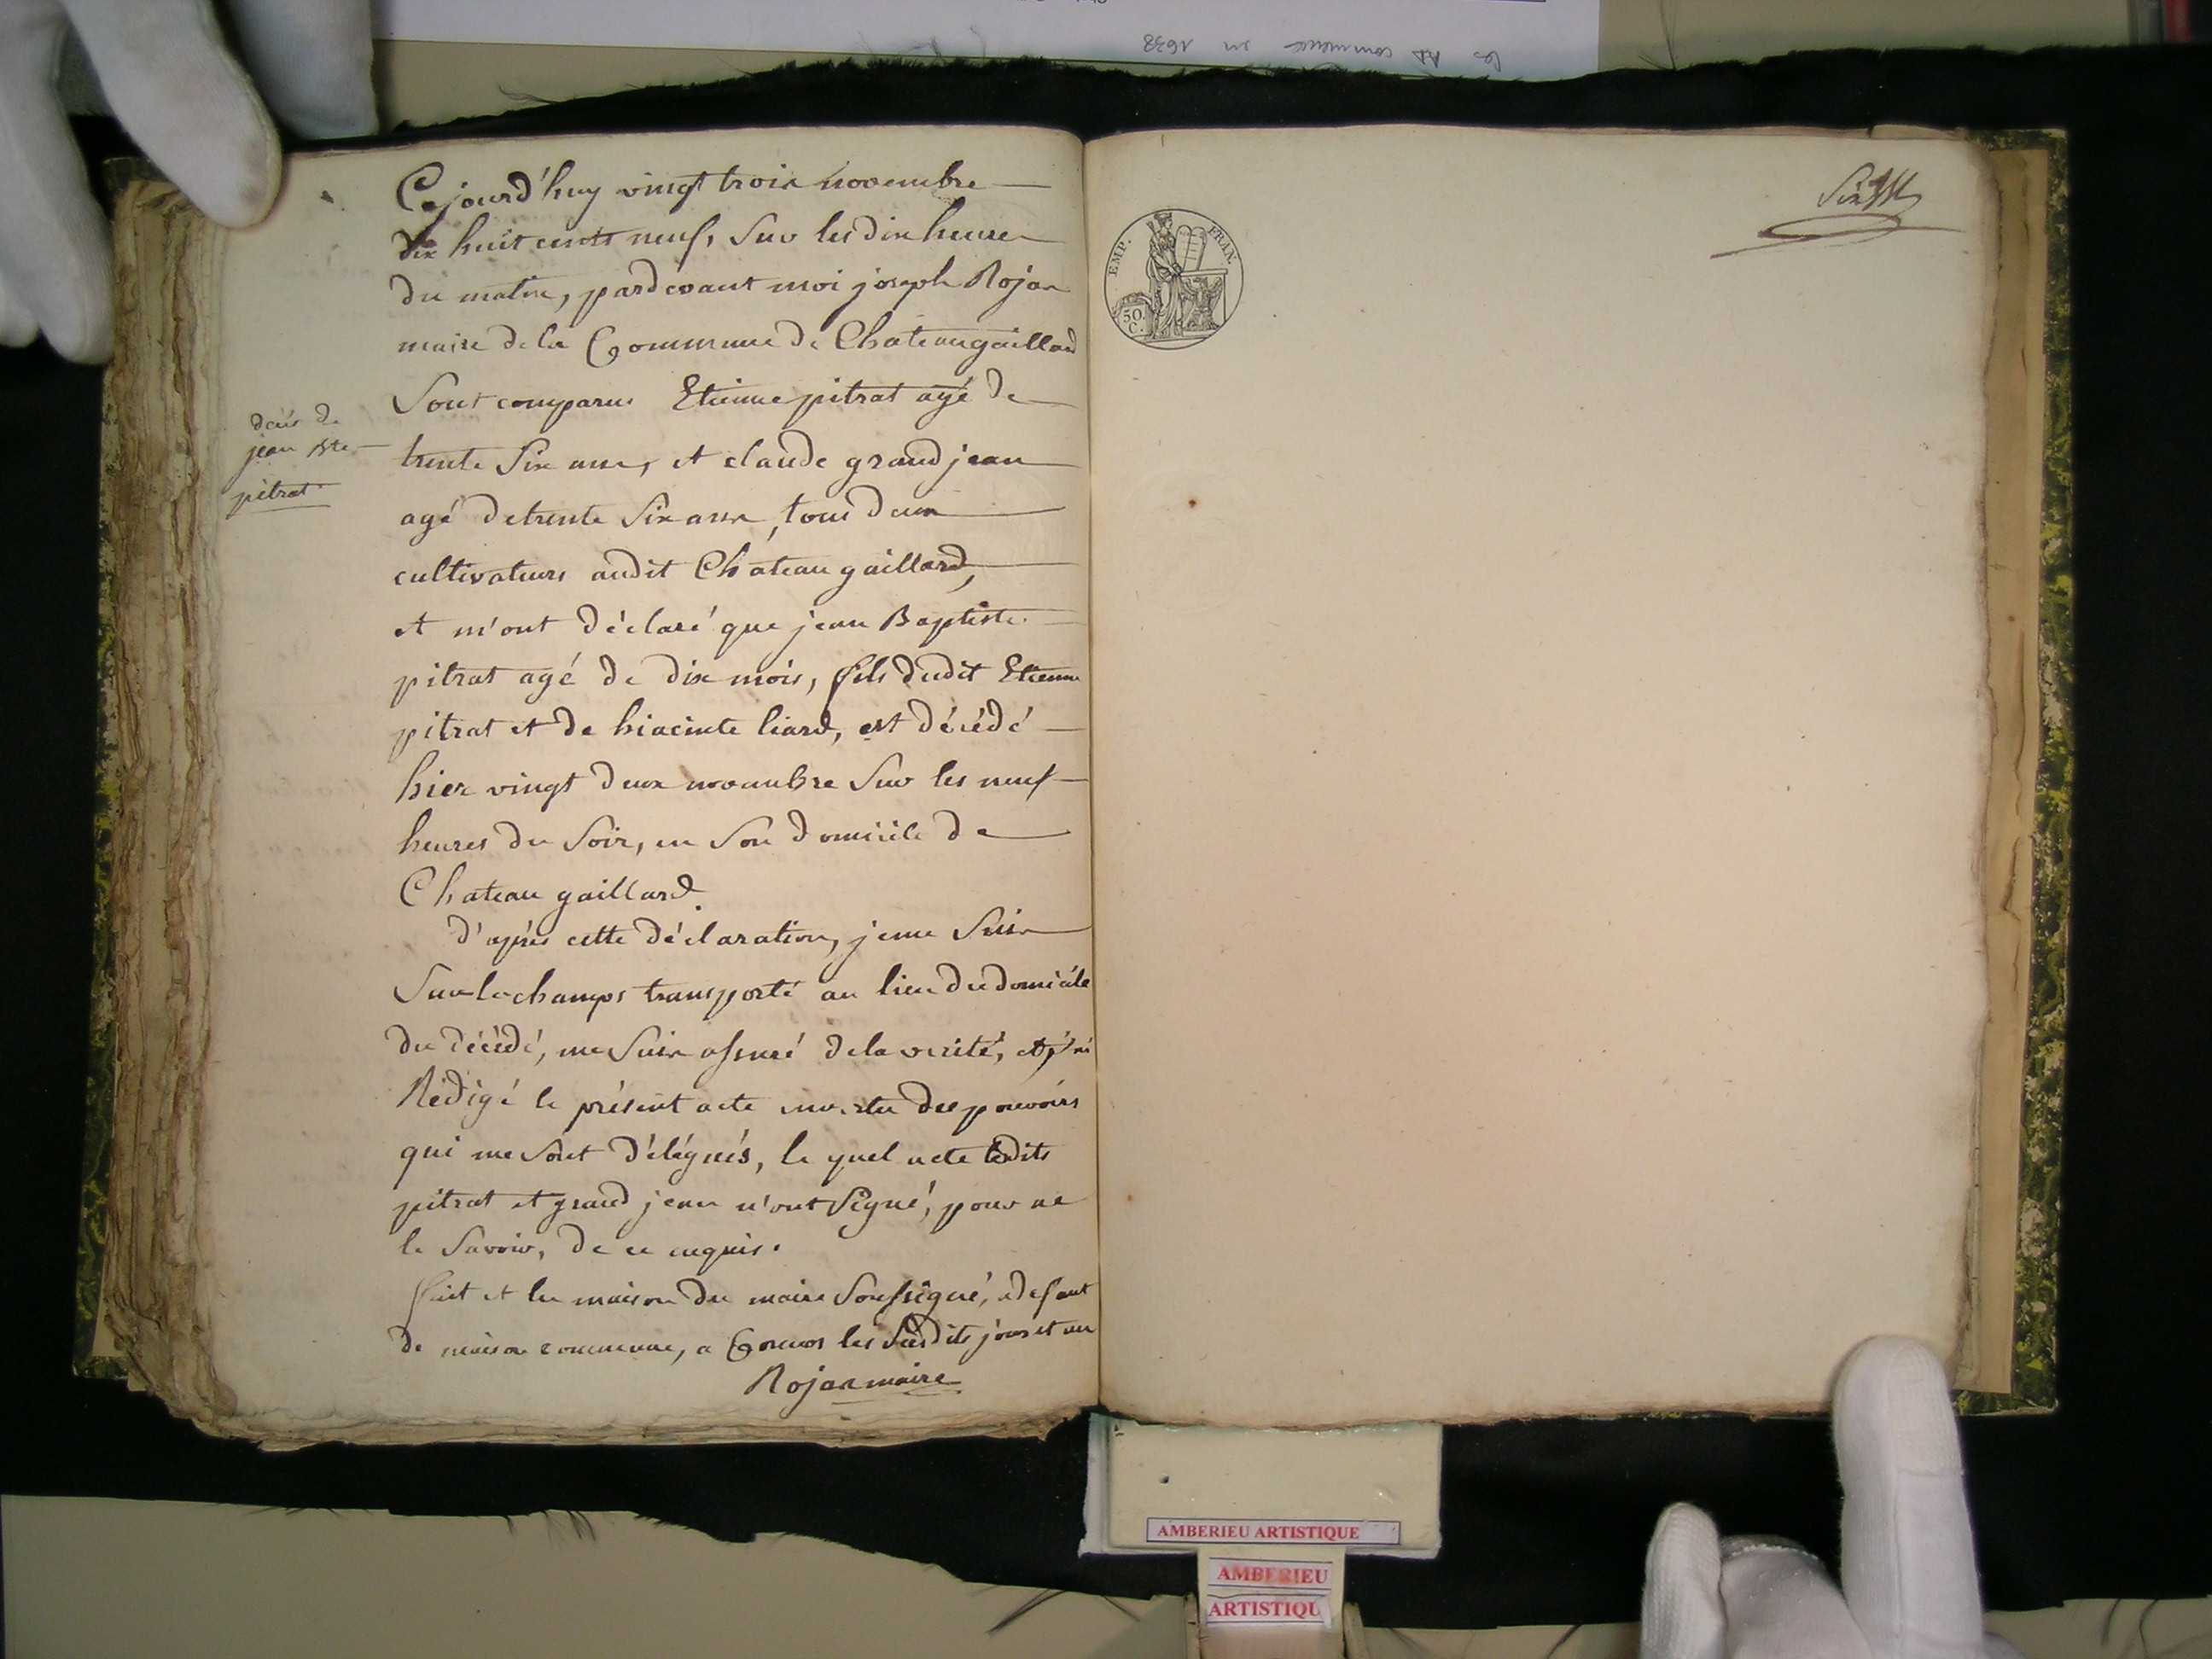 les AD commence en 1638
Cejourd'huy vingt trois novembre
dix huit cents neuf, Sur les dix heures
du matin, pardevant moi joseph Rojan
maire de la Commune de Chateaugaillard
Sont comparus Etienne pitrat agé de
trente Six ans, et claude grand jean
agé de trente Six ans, tous deux
cultivateurs audit Chateau gaillard,
et m'ont déclaré que jean Baptiste
pitrat agé de dix mois, fils dudit Etienne
pitrat et de hiacinte liard, est décédé
hier vingt deux novembre Sur les neuf
heures du Soir, en Son domicile de
Chateau gaillard.
décès de
jean Bte
pitrat
d'après cette déclaration, je me Suis
Sur le champs transporté au lieu du domicile
du décédé, me Suis assuré de la verité, et j'ai
Rédigé le présent acte en vertu des pouvoirs
qui me Sont délégués, le quel acte lesdits
pitrat et grand jean n'ont Signé, pour ne
le Savoir, de ce enquis.
fait et lu maison du maire Soussigné, a defaut
de maison commune, a Cormos les Susdits jour et an
Rojan maire
EMP. FRAN.
50.
C.
Sixte
AMBERIEU ARTISTIQUE
AMBERIEU
ARTISTIQU